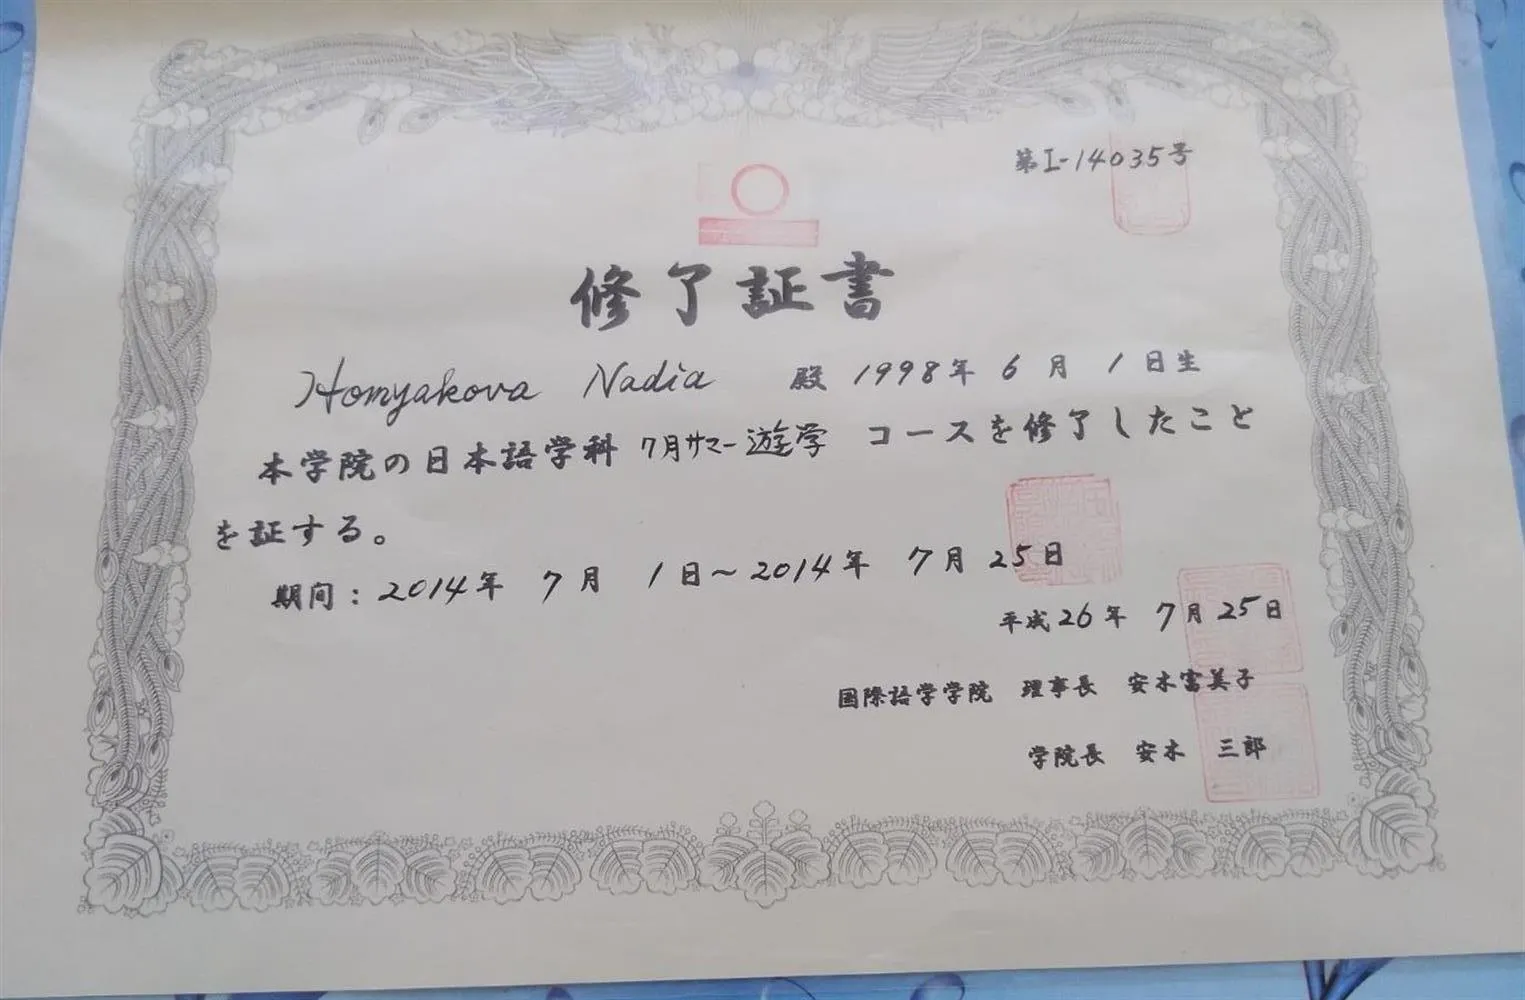 第I-14035号
修了証書
Homyakova Nadia 殿 1998年 6月 1日生
本学院の日本語学科 7月サマー遊学 コースを修了したこと
を証する。
期間：2014年 7月 1日～2014年 7月 25日
平成26年 7月 25日
国際語学学院 理事長 安木富美子
学院長 安木 三郎